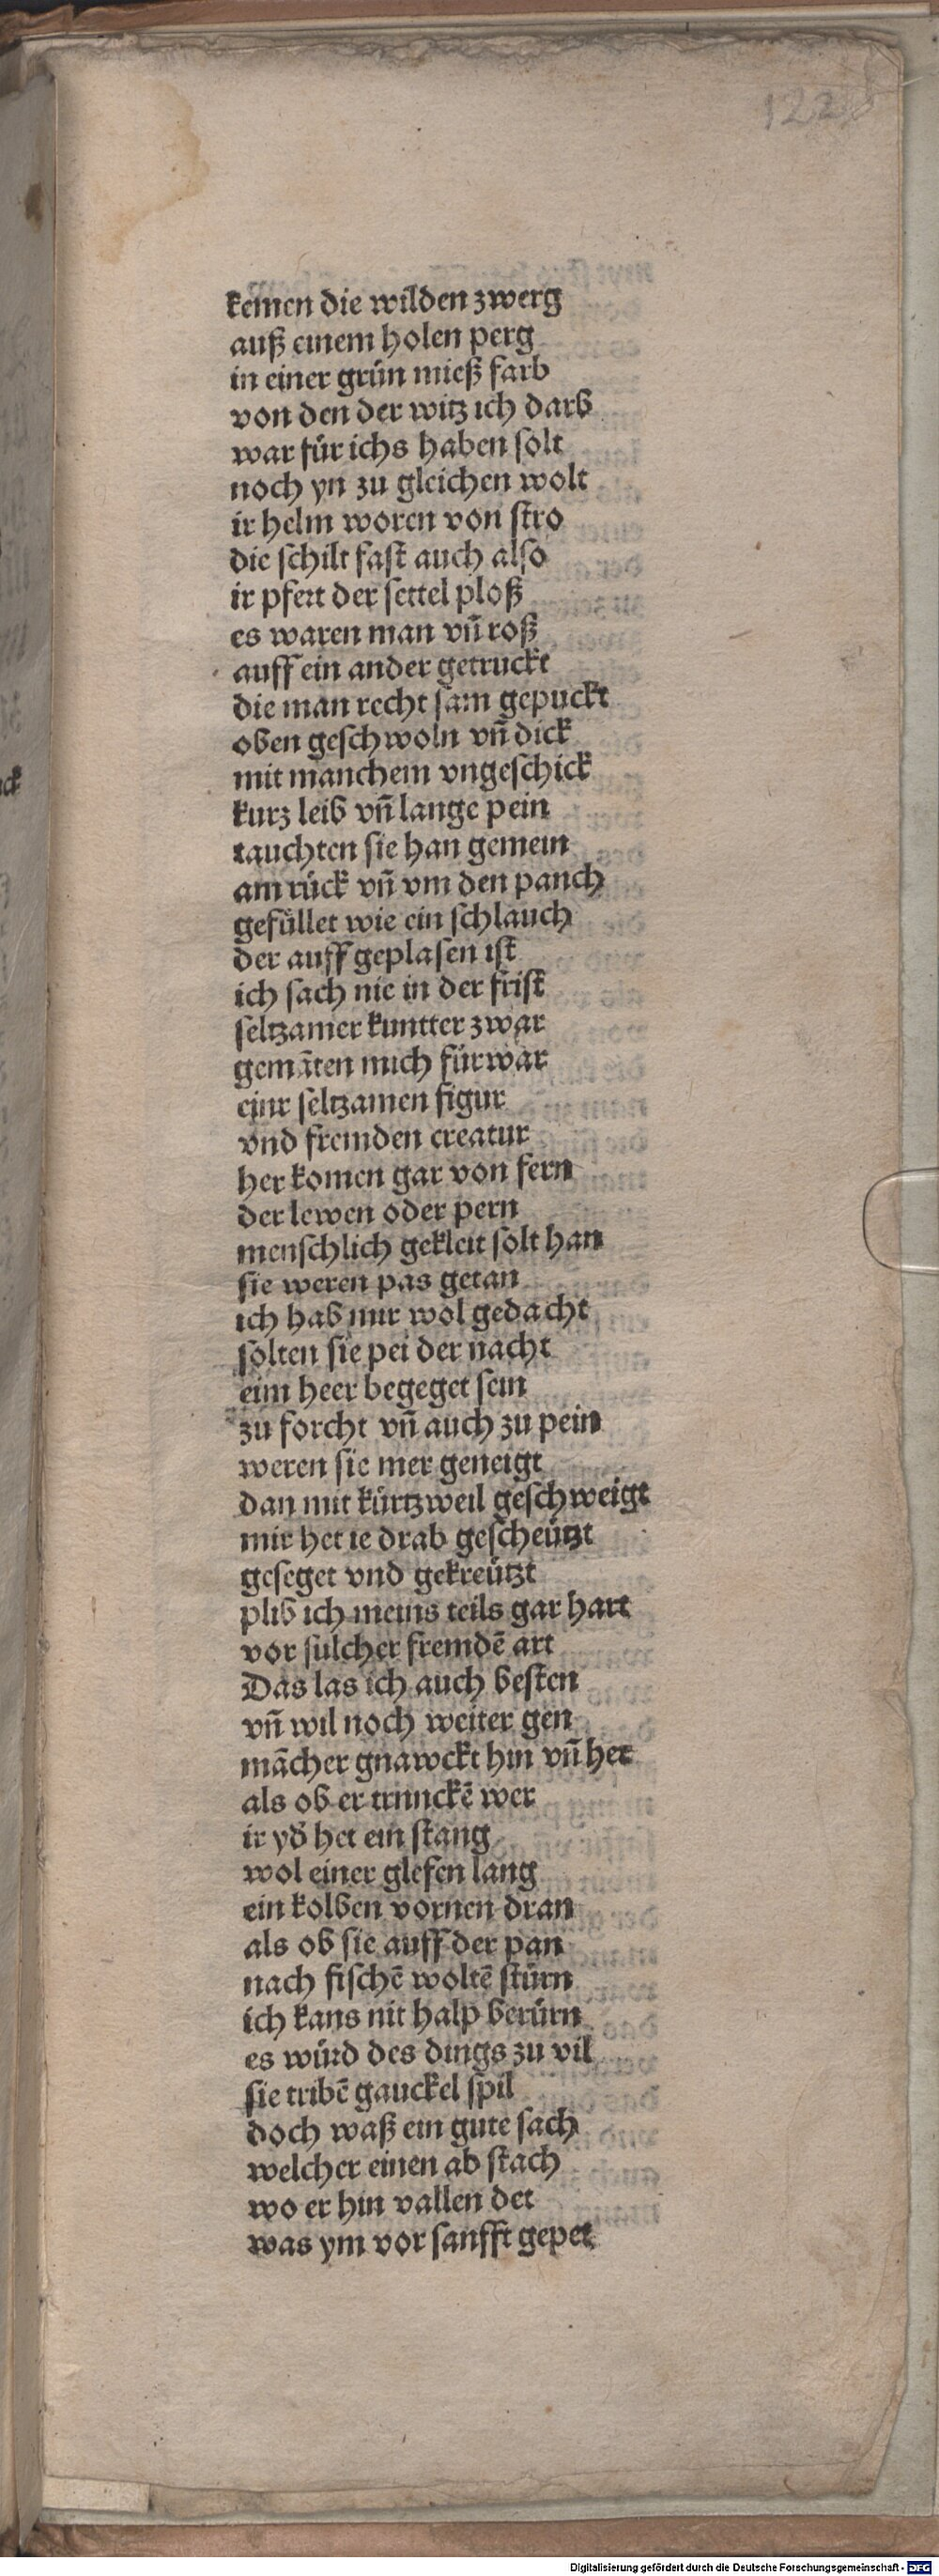 122
kemen die wilden zwerg
auß einem holen perg
in einer grün mieß farb
von den der witz ich darb
war für ichs haben solt
noch yn zu gleichen wolt
ir helm woren von stro
die schilt fast auch also
ir pfert der settel ploß
es waren man vñ roß
auff ein ander getruckt
die man recht sam gepuckt
oben geschwoln vñ dick
mit manchem vngeschick
kurz leib vñ lange pein
tauchten sie han gemein
am rück vñ vm den panch
gefüllet wie ein schlauch
der auff geplasen ist
ich sach nie in der frist
seltzamer kuntter zwar
gemāten mich fürwar
einr seltzamen figur
vnd fremden creatur
her komen gar von fern
der lewen oder pern
menschlich gekleit solt han
sie weren pas getan
ich hab mir wol gedacht
solten sie pei der nacht
eim heer begeget sein
zu forcht vñ auch zu pein
weren sie mer geneigt
dan mit kürtzweil geschweigt
mir het ie drab gescheützt
geseget vnd gekreützt
plib ich meins teils gar hart
vor sulcher fremdē art
Das las ich auch besten
vñ wil noch weiter gen
mācher gnawckt hin vñ her
als ob er trunckē wer
ir yd̛ het ein stang
wol einer glefen lang
ein kolben vornen dran
als ob sie auff der pan
nach fischē woltē stürn
ich kans nit halp berürn
es würd des dings zu vil
sie tribē gauckel spil
doch waß ein gute sach
welcher einen ab stach
wo er hin vallen det
was ym vor sanfft gepet
Digitalisierung gefördert durch die Deutsche Forschungsgemeinschaft - DFG